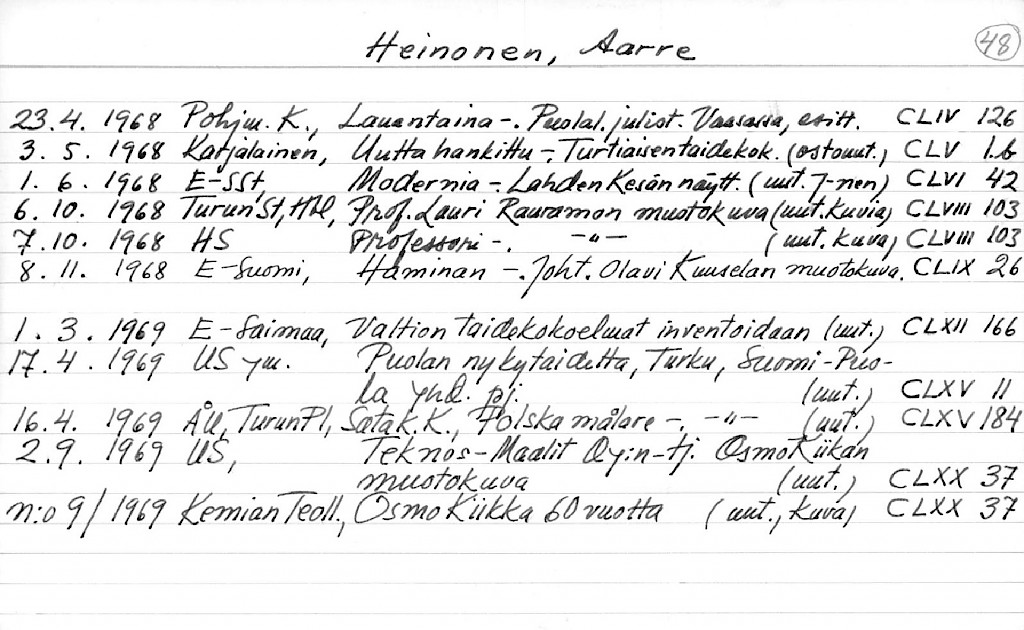 Heinonen, Aarre 48
23.4. 1968 Pohjm. K., Lauantaina -. Puolal. juliot. Vaasassa, esitt. CLIV 126
3. 5. 1968 Karjalainen, Uutta hankittu -, Turtiaisen taidekok. (ostouut.) CLV 1.6
1. 6. 1968 E-SSt, Modernia -. Lahden Kesän näytt. (uut. 7-nen) CLVI 42
6. 10. 1968 Turun St, Hbl, Prof. Lauri Rauramon muotokuva (uut. kuvia) CLVIII 103
7.10. 1968 HS Professori -. -"- (uut. kuva) CLVIII 103
8. 11. 1968 E-Suomi, Haminan -. Joht. Olavi Kuuselan muotokuva. CLIX 26
1. 3. 1969 E-Saimaa, Valtion taidekokoelmat inventoidaan (uut.) CLXII 166
17.4. 1969 US ym. Puolan nykytaidetta, Turku, Suomi-Puo-
la yhd. pj. (uut.) CLXV 11
16.4. 1969 ÅU, Turun Pl, Satak. K., Polska målare -. -"- (uut.) CLXV 184
2.9. 1969 US, Teknos-Maalit Oy:n-tj. Osmo Kiikan
muotokuva (uut.) CLXX 37
n:o 9/1969 Kemian Teoll., Osmo Kiikka 60 vuotta (uut., kuva) CLXX 37